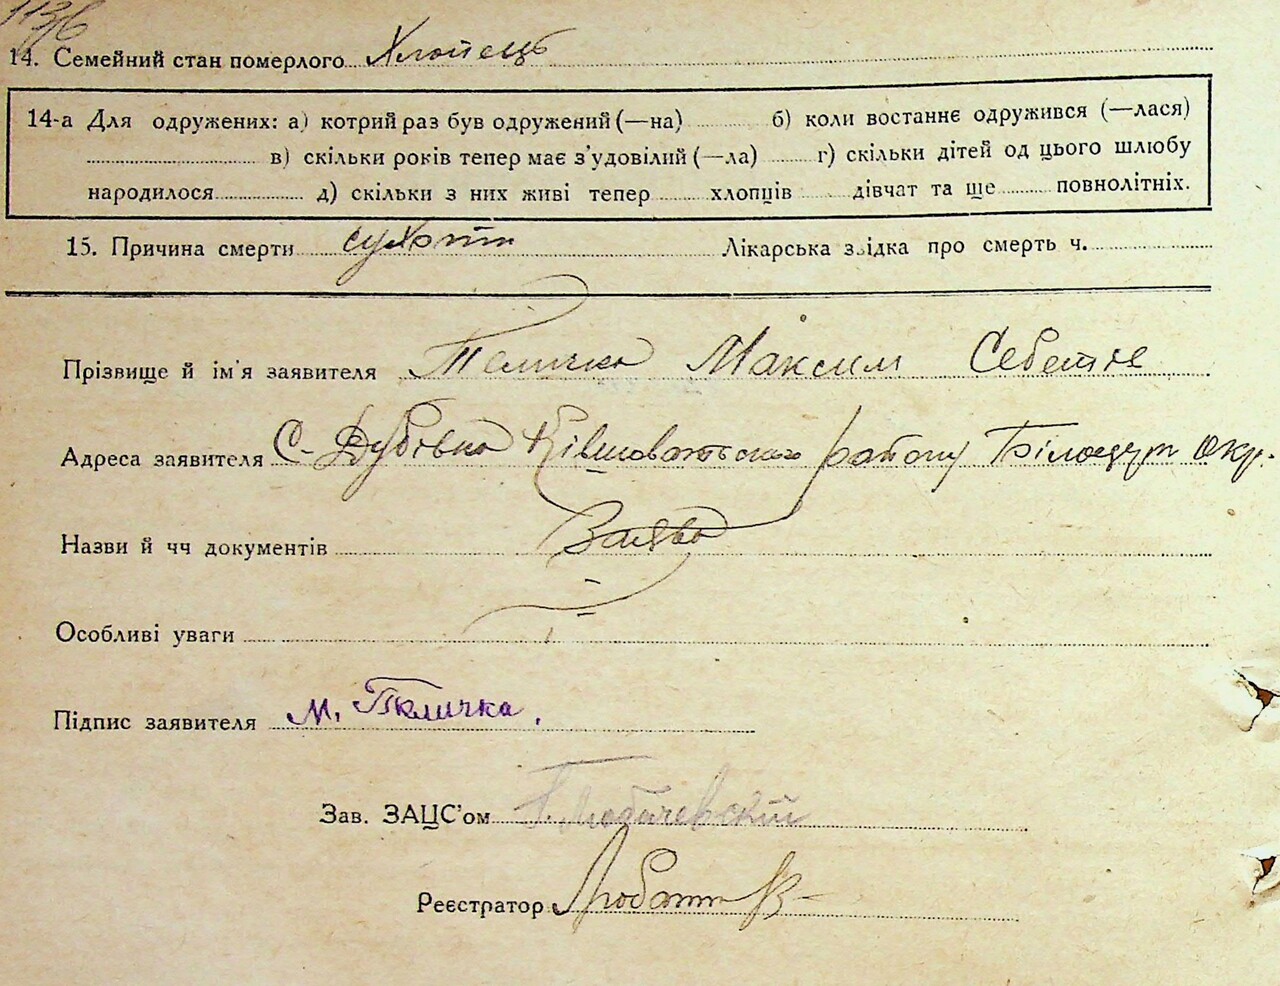 1136
14. Семейний стан померлого Хлопець
14-а Для одружених: а) котрий раз був одружений (—на) б) коли востаннє одружився (—лася)
в) скільки років тепер має з'удовілий (—ла) г) скільки дітей од цього шлюбу
народилося д) скільки з них живі тепер хлопців дівчат та ще повнолітніх.
15. Причина смерти сухоти Лікарська звідка про смерть ч.
Прізвище й ім'я заявителя Теличко Максим
Адреса заявителя С. Дубівка району Білоцерк окр.
Назви й чч документів Заява
Особливі уваги
Підпис заявителя М. Теличка.
Зав. ЗАЦС'ом
Реєстратор